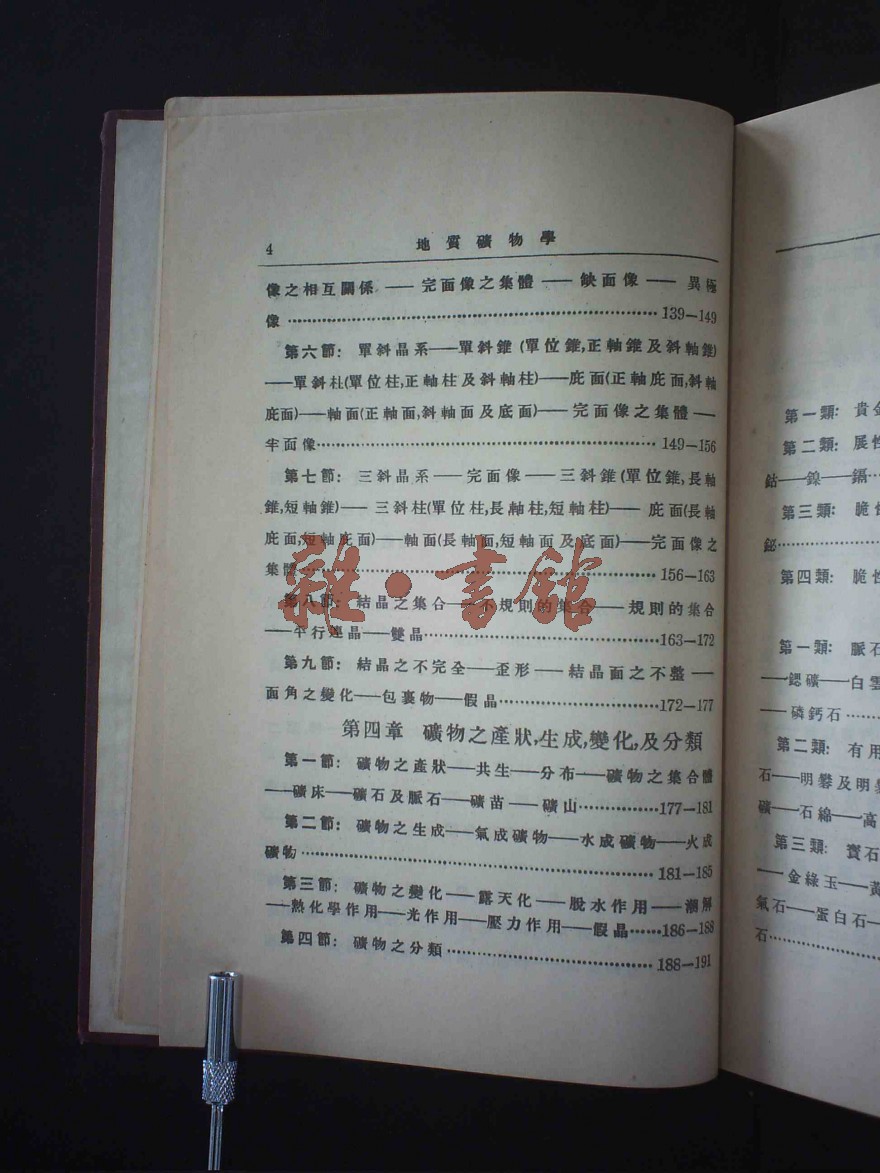 4 地質礦物學
像之相互關係——完面像之集體——缺面像——異極
像……139—149
第六節：單斜晶系——單斜錐(單位錐,正軸錐及斜軸錐)
——單斜柱(單位柱,正軸柱及斜軸柱)——庇面(正軸庇面,斜軸
庇面)——軸面(正軸面,斜軸面及底面)——完面像之集體——
半面像……149—156
第七節：三斜晶系——完面像——三斜錐(單位錐,長軸
錐,短軸錐)——三斜柱(單位柱,長軸柱,短軸柱)——庇面(長軸
庇面,短軸庇面)——軸面(長軸面,短軸面及底面)——完面像之
集體……156—163
第八節：結晶之集合——不規則的集合——規則的集合
——平行連晶——雙晶……163—172
第九節：結晶之不完全——歪形——結晶面之不整——
面角之變化——包裹物——假晶……172—177
第四章 礦物之產狀,生成,變化,及分類
第一節：礦物之產狀——共生——分布——礦物之集合體
——礦床——礦石及脈石——礦苗——礦山……177—181
第二節：礦物之生成——氣成礦物——水成礦物——火成
礦物……181—185
第三節：礦物之變化——露天化——脫水作用——潮解
——熱化學作用——光作用——壓力作用——假晶……186—188
第四節：礦物之分類……188—191
雜·書館
第一類：貴金
第二類：展性
鈷——鎳——鎘…
第三類：脆性
鉍……
第四類：脆性
第一類：脈石
——鍶礦——白雲
——磷鈣石……
第二類：有用
石——明礬及明礬
礦——石綿——高
第三類：寶石
——金綠玉——黃
氣石——蛋白石—
石……